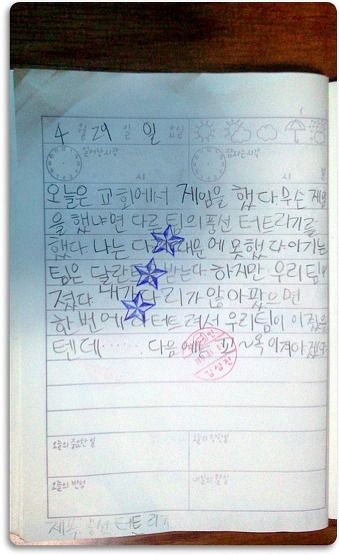 4 월 29 일 일 요일
일어난시각
잠자는시각
시 분
시 분
오늘은 교회에서 게임을 했다 무슨 게임
을 했냐면 다른 팀의 풍선 터트리기를
했다 나는 다 때문에 못했다 이기는
팀은 달란 받는다 하지만 우리팀
졌다 내가 다리가 않아팠으면
한 번에 터트려서 우리팀이 이겼을
텐데…… 다음에는 꼬~옥 이겨야겠
오늘의 중요한 일
오늘의 착한일
오늘의 반성
내일의 할일
제목 풍선 터트리기